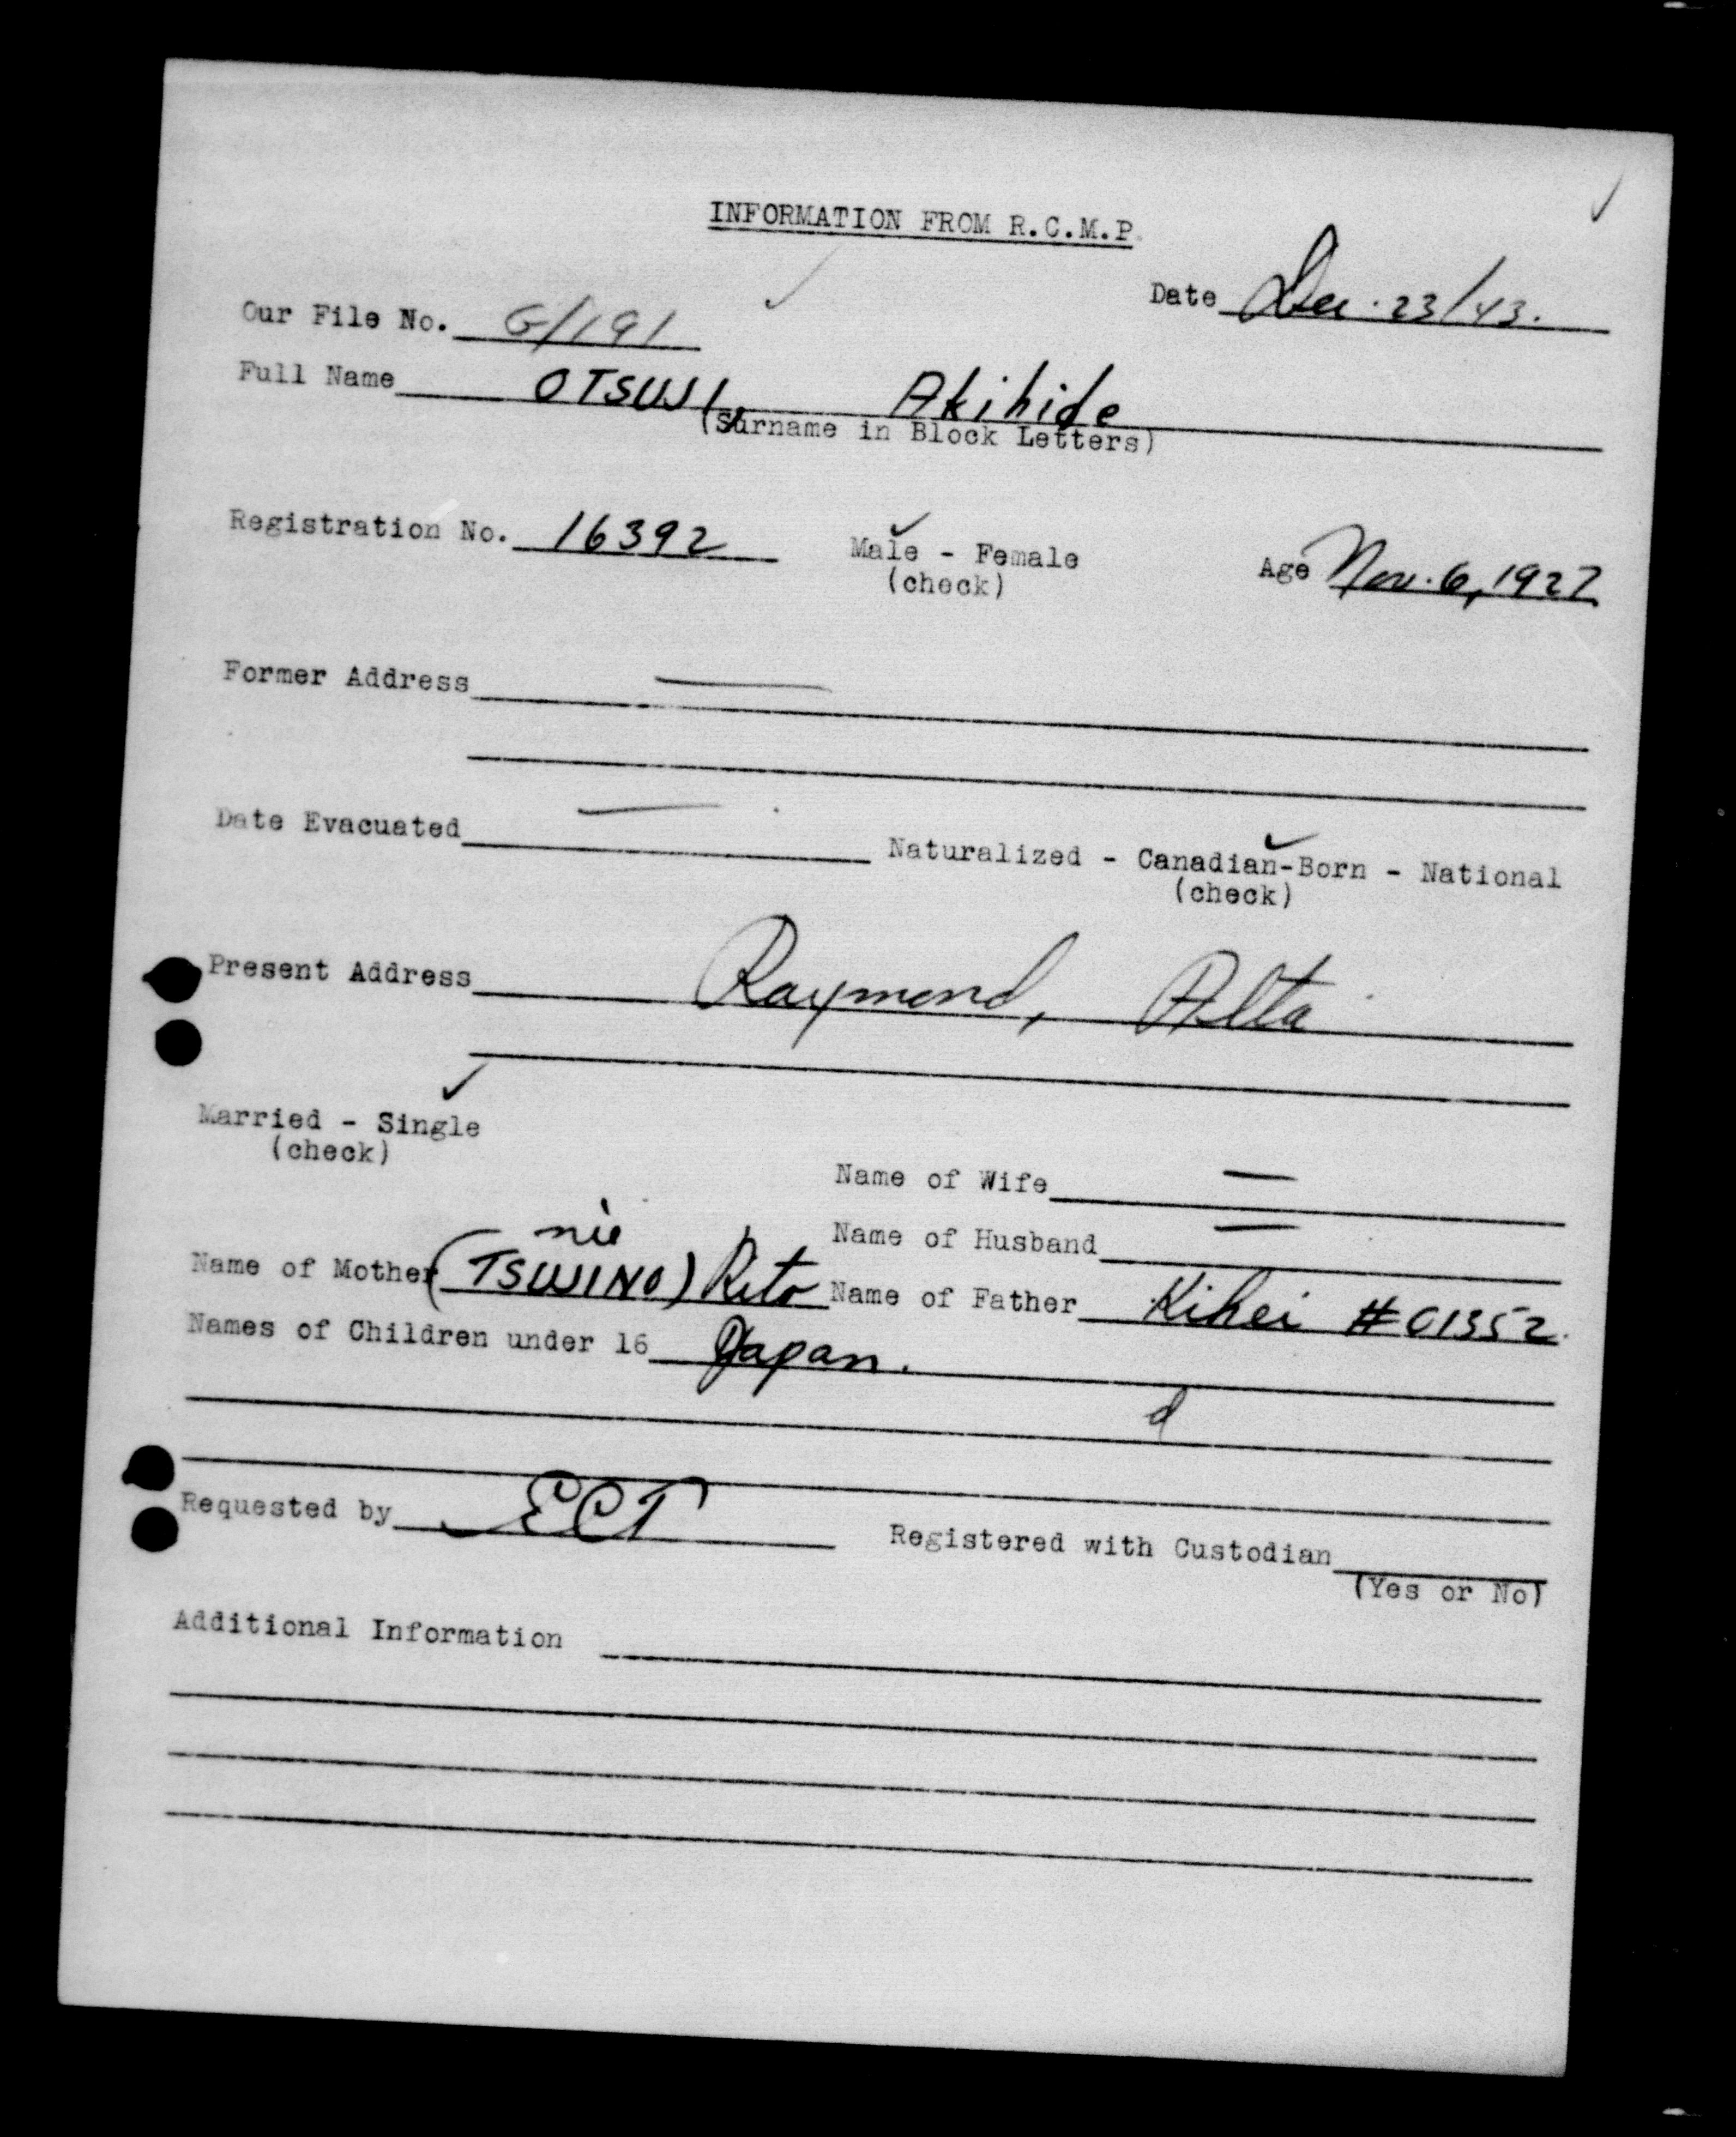 INFORMATION FROM R.C.M.P.
Date Dec. 23/43.
Our File No. G/191
Full Name OTSUJI, Akihide
(Surname in Block Letters)
Registration No. 16392 Male - Female Age Nov. 6, 1927
(check)
Former Address —
Date Evacuated — Naturalized - Canadian-Born - National
(check)
Present Address Raymond, Alta
Married - Single
(check)
Name of Wife —
nie
Name of Husband —
Name of Mother (TSUJINO) Kito Name of Father Kihei #01352.
Names of Children under 16 Japan.
d
Requested by ECT
Registered with Custodian
(Yes or No)
Additional Information